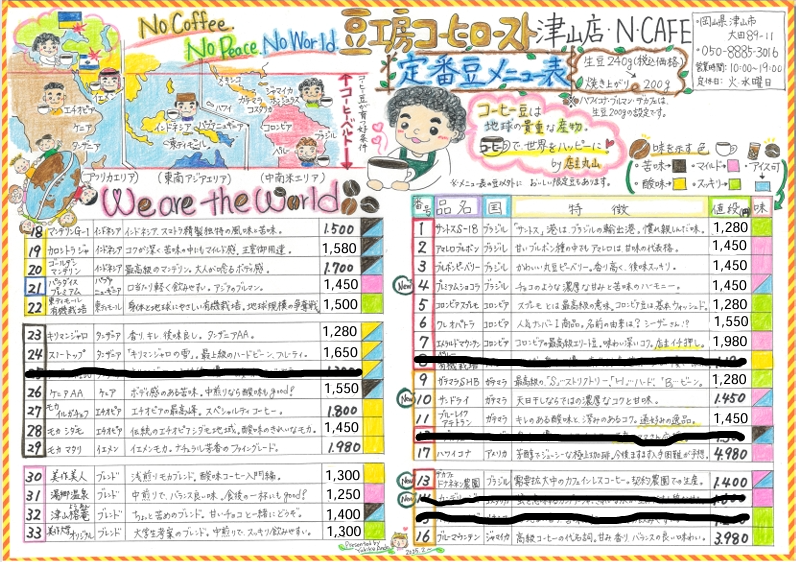 No Coffee.
No Peace. No World.
豆工房コーヒーロースト 津山店・N・CAFE
定番豆メニュー表
・岡山県津山市
大田89-11
・050-8885-3016
営業時間:10:00~19:00
定休日:火・水曜日
生豆240g(税込価格)
焼き上がり 200g
コーヒー豆は
地球の貴重な産物。
コーヒーで世界をハッピーに
by 店主丸山
コーヒー豆が育つ好条件
コーヒーベルト
メキシコ
ハワイ
ジャマイカ
グアテマラ
ホンジュラス
コスタリカ
コロンビア
ブラジル
ペルー
エチオピア
ケニア
タンザニア
インドネシア
パプアニューギニア
東ティモール
(アフリカエリア)
(東南アジアエリア)
(中南米エリア)
We are the World!
味を示す色
・苦味→ ・マイルド→ アイス可
・酸味→ ・スッキリ→
番号 品名 国 特徴 値段(円) 味
1 サントスS-18 ブラジル 1,280
2 アマレロブルボン ブラジル 甘いブルボン種の中でもアマレロは甘味の代表格。 1,450
3 ブルボンピーベリー ブラジル かわいい丸豆ピーベリー。香り高く、後味スッキリ。 1,450
New 4 プレミアムショコラ ブラジル チョコのような濃厚な甘みと苦味のハーモニー。 1,450
5 コロンビアスプレモ コロンビア スプレモとは最高級の意味。コロンビア豆は基本ウォッシュド。 1,280
6 クレオパトラ コロンビア 人気ナンバー1商品。名前の由来は?シーザーさん!? 1,550
7 エメラルドマウンテン コロンビア コロンビアの最高級エリート豆。味わい深いコク。店主イチ押し。 1,980
9 ガテマラSHB ガテマラ 1,280
New 10 サンドライ ガテマラ 天日干しならではの濃厚なコクと甘味。 1,450
11 ブルーレイク アテトラン ガテマラ キレのある酸味と深みのあるコク。通好みの逸品。 1,450
17 ハワイコナ アメリカ 4,980
New 13 デカフェ ドナネネン農園 ブラジル 需要拡大中のカフェインレスコーヒー。契約農園での生産。 1,400
New
16 ブルーマウンテン ジャマイカ 高級コーヒーの代名詞。甘み香り、バランスの良い味わい。 3,980
18 マンデリンG-1 インドネシア インドネシア、スマトラ精製独特の風味と苦味。 1,500
19 カロシトラジャ インドネシア コクが深く苦味の中にもマイルド感。王室御用達。 1,580
20 ゴールデンマンデリン インドネシア 最高級のマンデリン。大人が唸るボディ感。 1,700
21 パラダイスプレミアム パプアニューギニア 口当たり軽く飲みやすい。アジアのブルマン。 1,450
22 東ティモール 東ティモール 身体と地球にやさしい有機栽培。地球規模の争奪戦 1,500
23 キリマンジャロ タンザニア 香り、キレ、後味良し。タンザニアAA。 1,280
24 スノートップ タンザニア 「キリマンジャロの雪」。最上級のハードビーン。フルーティ。 1,650
26 ケニアAA ケニア ボディ感のある苦味。中煎りなら酸味もgood! 1,550
27 モカ イルガチェフ エチオピア エチオピアの最高峰。スペシャルティコーヒー。 1,800
28 モカシダモ エチオピア 伝統のエチオピアシダモ地域。酸味のきれいなモカ。 1,450
29 モカマタリ イエメン イエメンモカ。ナチュラル芳香のファイングレード。 1,980
30 美作美人 ブレンド 浅煎りモカブレンド。酸味コーヒー入門編。 1,300
31 湯郷温泉 ブレンド 中煎りで、バランス良い味。食後の一杯にもgood! 1,250
32 津山榕菴 ブレンド ちょと苦めのブレンド。甘いチョコと一緒にどうぞ。 1,400
33 美作大学オリジナル ブレンド 大学生考案のブレンド。中煎りで、スッキリ飲みやすい。 1,300
Presented by